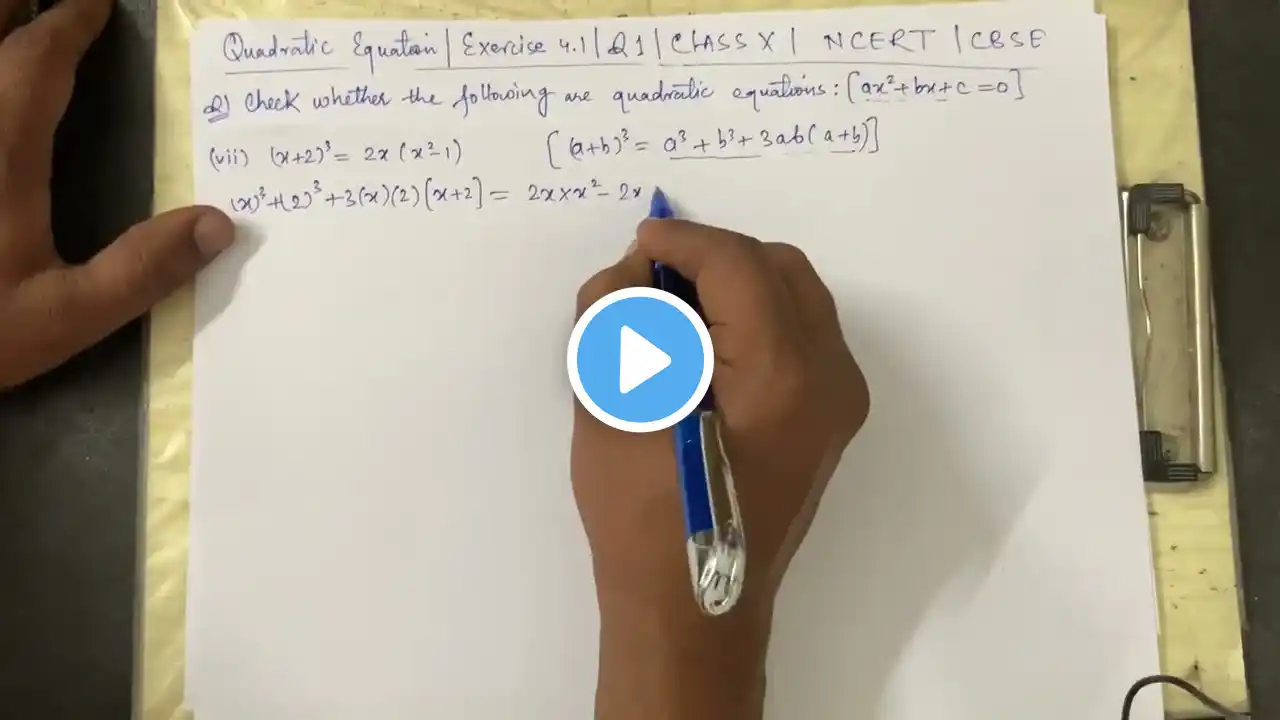 Quadratic Equation | Exercise 4.1 | Q1 | CLASS X | NCERT | CBSE
Q) Check whether the following are quadratic equations: [ax²+bx+c=0]
(vii) (x+2)³ = 2x(x²-1) [(a+b)³ = a³+b³+3ab(a+b)]
(x)³+(2)³+3(x)(2)[x+2] = 2x×x²-2x